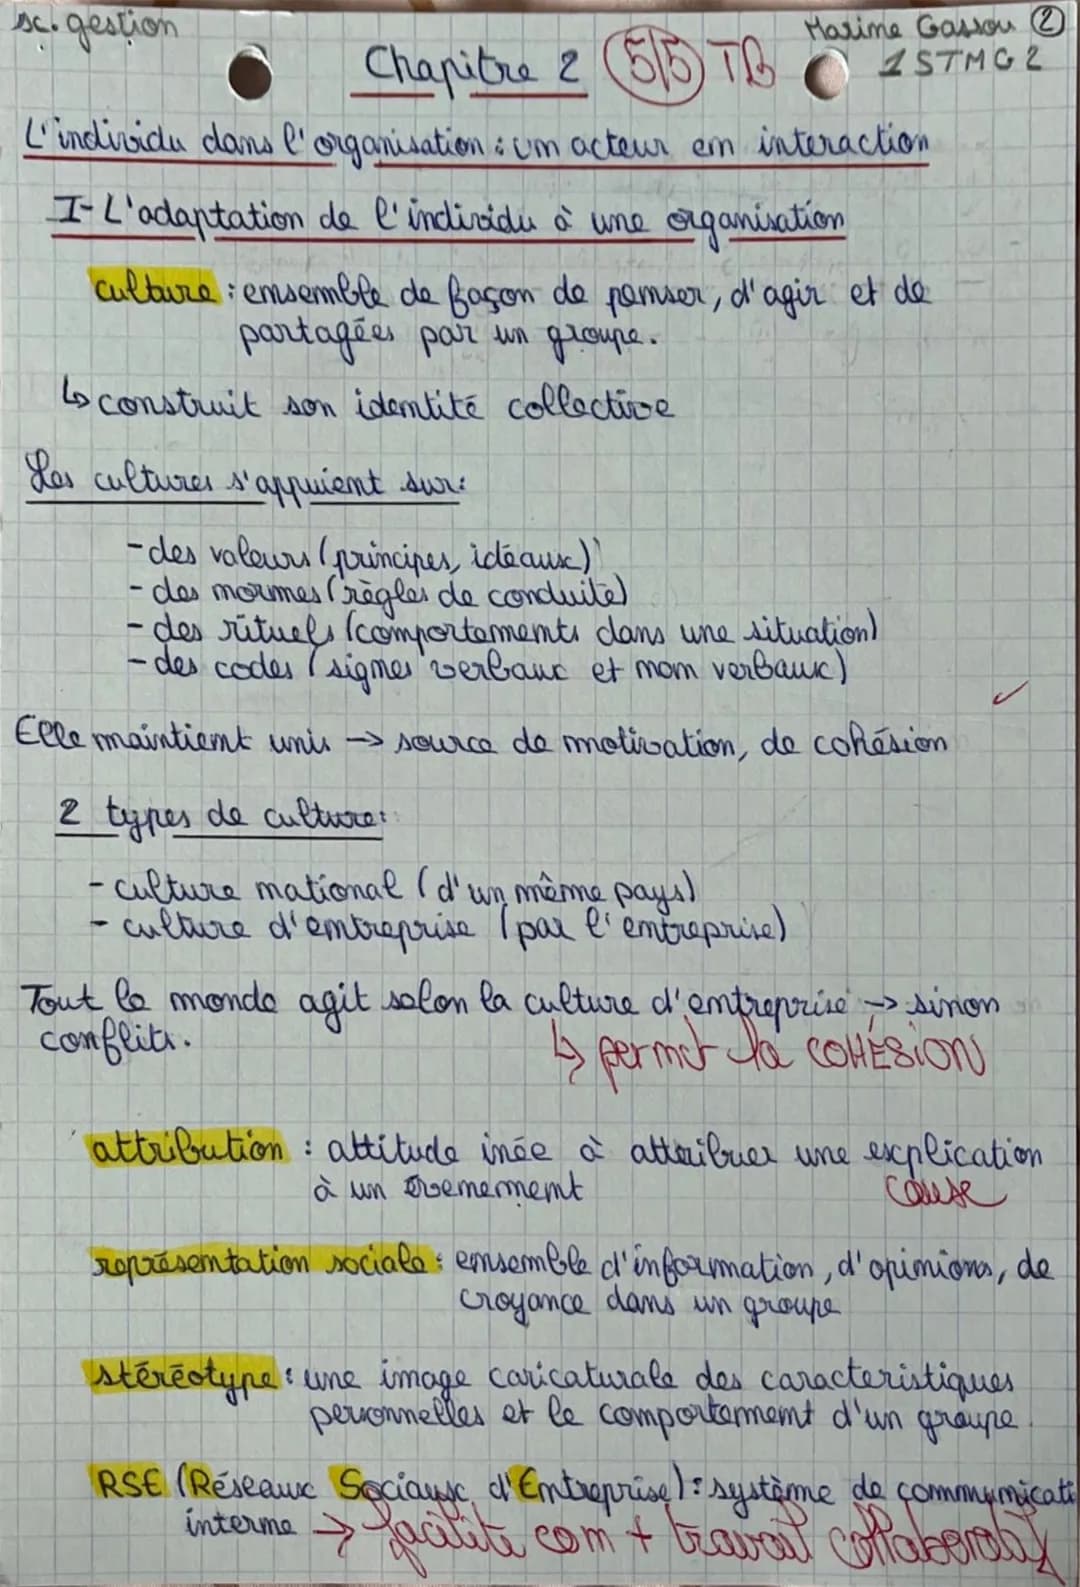 sc. gestion
Maxime Gassou ②
1STMG2
Chapitre 2 5/5 TB
L'individu dans l'organisation : un acteur en interaction
I- L'adaptation de l'individu à une organisation
culture : ensemble de façon de penser, d'agir et de
partagées par un groupe.
↳ construit son identité collective
Les cultures s'appuient sur:
- des valeurs (principes, idéaux)
- des normes (règles de conduite)
- des rituels (comportements dans une situation)
- des codes (signes verbaux et non verbaux)
Elle maintient unis → source de motivation, de cohésion
2 types de culture:
- culture national (d'un même pays)
- culture d'entreprise (par l'entreprise)
Tout le monde agit selon la culture d'entreprise → sinon
conflits.
↳ permet la COHÉSION
attribution : attitude inée à attribuer une explication
à un évenement
cause
représentation sociale : ensemble d'information, d'opinions, de
croyance dans un groupe
stéréotype : une image caricaturale des caractéristiques
personnelles et le comportement d'un groupe.
RSE (Réseaux Sociaux d'Entreprise) : système de communicati
interne → facilite com + travail collaboratif